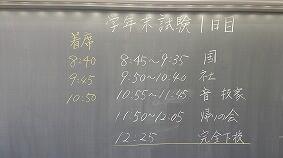 学年末試験1日目
着席
8:40 8:45~9:35 国
9:45 9:50~10:40 社
10:50 10:55~11:45 音 技家
11:50~12:05 帰りの会
12:25 完全下校